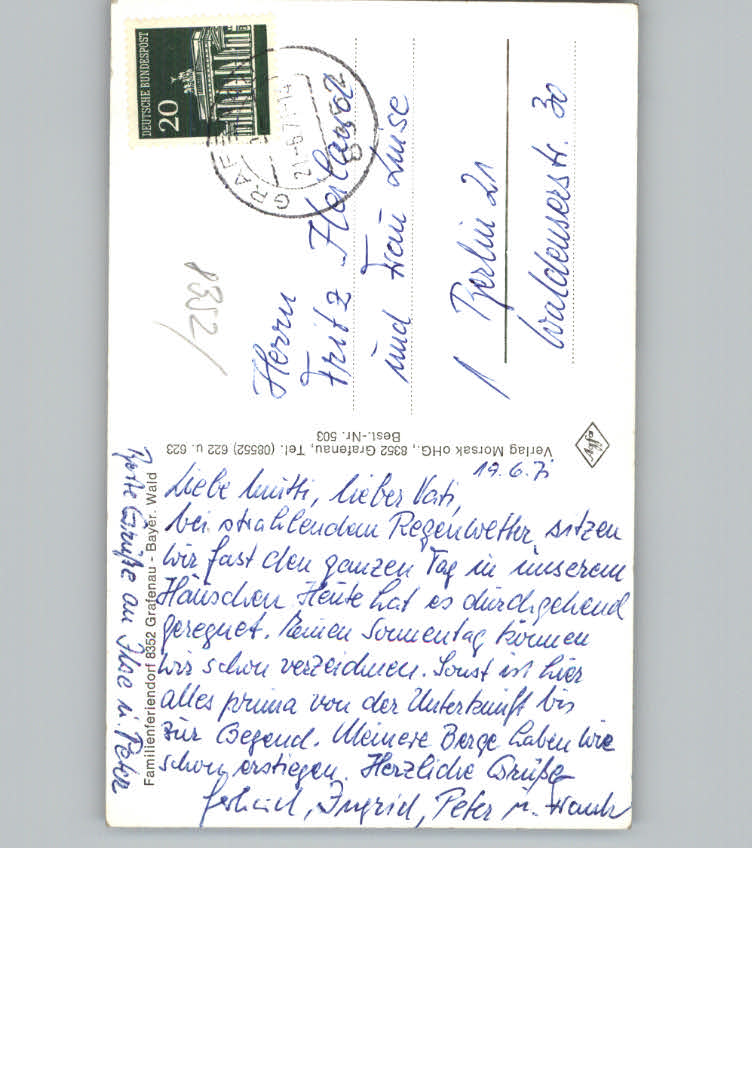 19.6.71
Liebe Mutti, lieber Vati,
bei strahlendem Regenwetter sitzen
wir fast den ganzen Tag in unserem
Häuschen. Heute hat es durchgehend
geregnet. Keinen Sonnentag können
wir schon verzeichnen. Sonst ist hier
alles prima von der Unterkunft bis
zur Gegend. Kleinere Berge haben wir
schon erstiegen. Herzliche Grüße
Gerhard, Ingrid, Peter u. Frank
Beste Grüße an Ilse u. Peter
Familienferiendorf 8352 Grafenau - Bayer. Wald
Verlag Morsak oHG., 8352 Grafenau, Tel. (08552) 622 u. 623
Best.-Nr. 503
DEUTSCHE BUNDESPOST
20
21-6.71-14
8352
8352
Herrn
Fritz
und Frau Luise
1 Berlin 21
Waldenserstr. 30